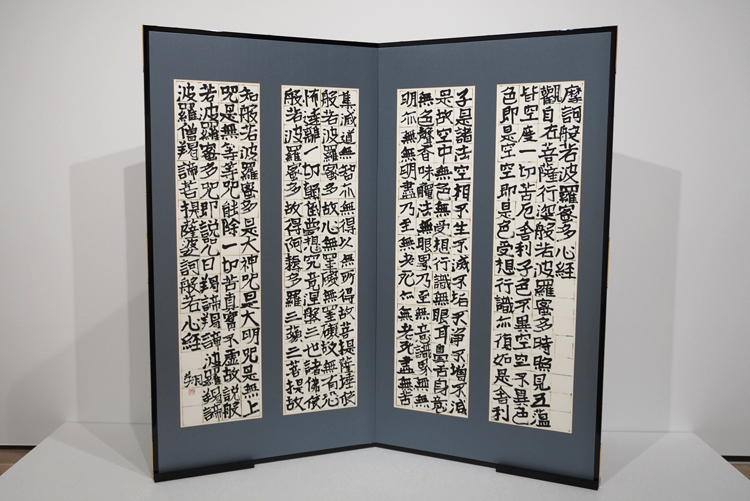 摩訶般若波羅蜜多心経
觀自在菩薩行深般若波羅蜜多時照見五蘊
皆空度一切苦厄舍利子色不異空空不異色
色即是空空即是色受想行識亦復如是舍利
子是諸法空相不生不滅不垢不浄不増不減
是故空中無色無受想行識無眼耳鼻舌身意
無色聲香味觸法無眼界乃至無意識界無無
明亦無無明盡乃至無老死亦無老死盡無苦
集滅道無智亦無得以無所得故菩提薩埵依
般若波羅蜜多故心無罣礙無罣礙故無有恐
怖遠離一切顛倒夢想究竟涅槃三世諸佛依
般若波羅蜜多故得阿耨多羅三藐三菩提故
知般若波羅蜜多是大神咒是大明咒是無上
咒是無等等咒能除一切苦真實不虚故説般
若波羅蜜多咒即説咒曰羯諦羯諦波羅羯諦
波羅僧羯諦菩提薩婆訶般若心經